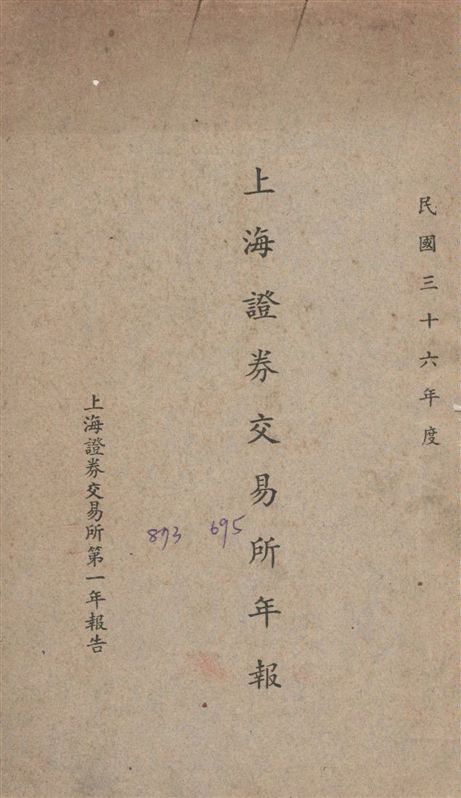 民國三十六年度
上海證券交易所年報
上海證券交易所第一年報告
873 695